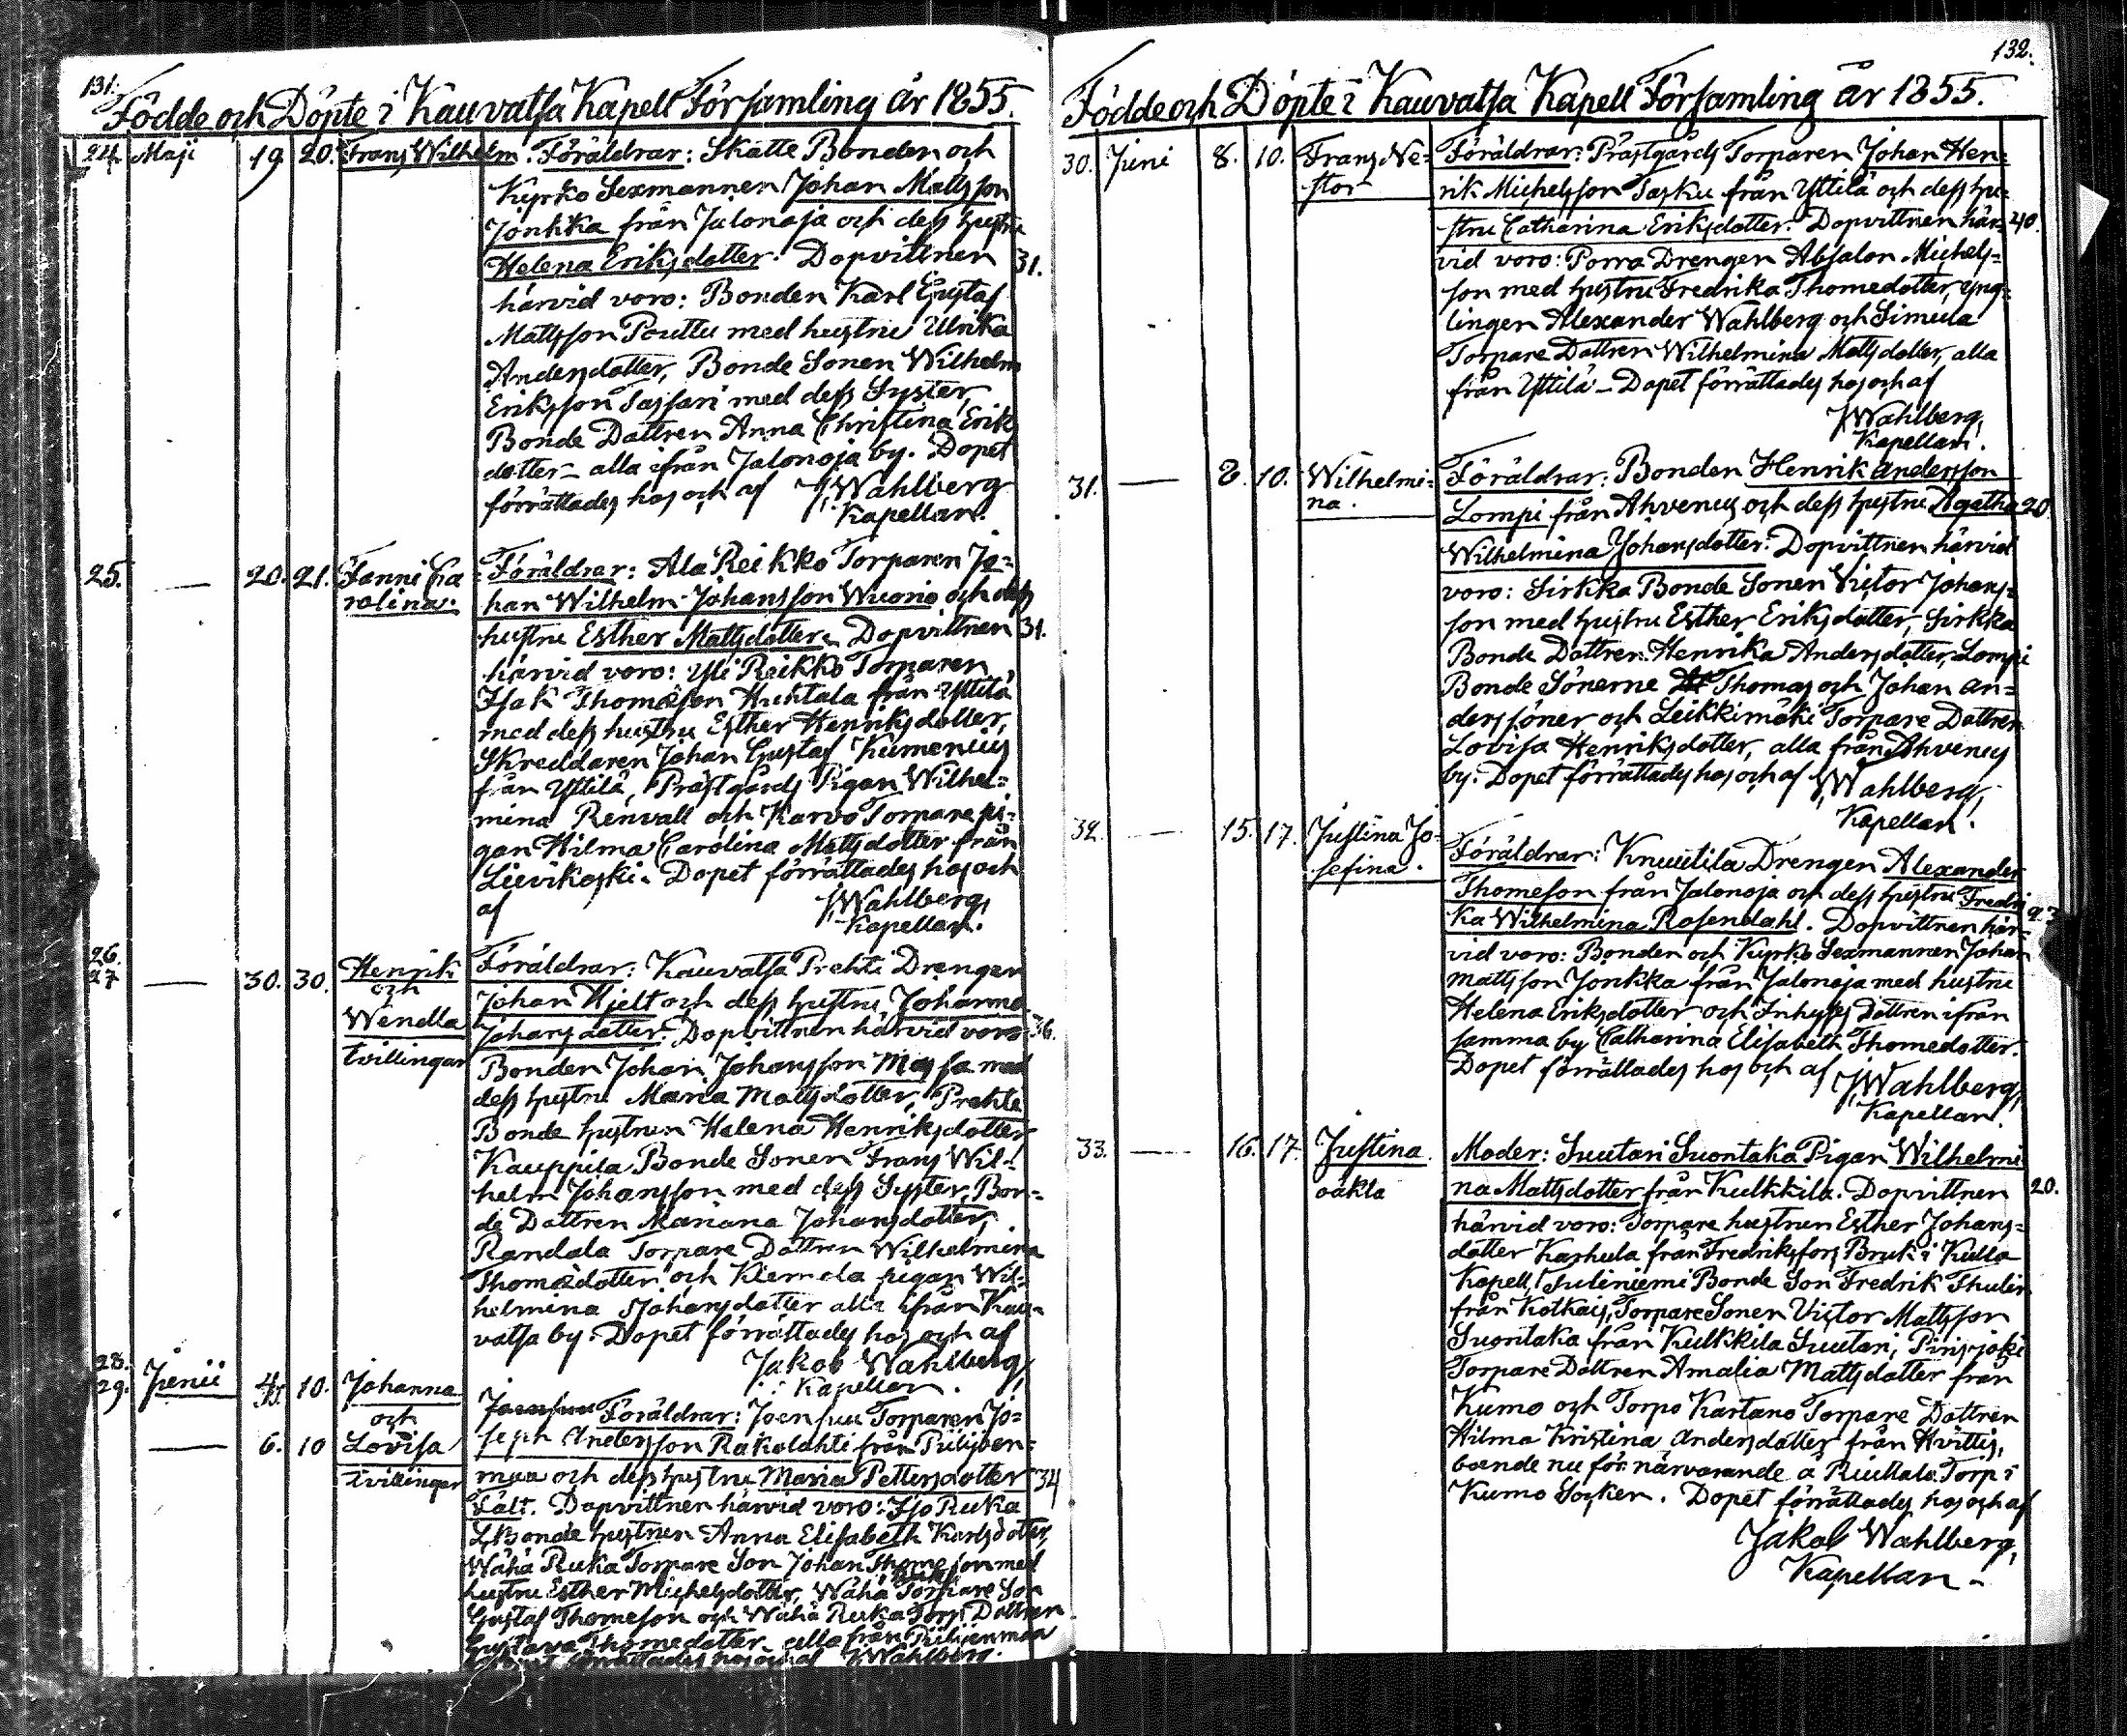 131.
Födde och Döpte i Kauvatsa Kapell Församling år 1855.
24. Maji 19 20. Frans Wilhelm. Föräldrar: Skatte Bonden och
Kyrko Sexmannen Johan Mattsson
Jonkka från Jalonoja och dess hustru
Helena Eriksdotter. Dopvittnen 31.
härvid voro: Bonden Karl Gustaf
Mattsson Pouttu med hustru Ulrika
Andersdotter, Bonde Sonen Wilhelm
Eriksson Sassari med dess Syster,
Bonde Dottren Anna Christina Eriks
dotter – alla ifrån Jalonoja by. Dopet
förrättades hos och af J. Wahlberg
Kapellan.
25. — 20. 21. Fanni Ca- Föräldrar: Ala Reikko Torparen Jo-
rolina. han Wilhelm Johansson Wuorio och dess
hustru Esther Mattsdotter. Dopvittnen 31.
härvid voro: Yli Reikko Torparen
Isak Thomasson Huhtala från Yttilä
med dess hustru Esther Henriksdotter,
Skreddaren Johan Gustaf Kumenius
från Yttilä, Prästgårds Pigan Wilhel-
mina Renvall och Karvo Torpare pi-
gan Hilma Carolina Mattsdotter från
Lievikoski. Dopet förrättades hos och
af J. Wahlberg,
Kapellan.
26.
27 — 30. 30. Henrik Föräldrar: Kauvatsa Prehti Drengen
och Johan Hjelt och dess hustru Johanna
Wendla Johansdotter. Dopvittnen härvid voro 36.
tvillingar Bonden Johan Johansson Massa med
dess hustru Maria Mattsdotter, Prehti
Bonde hustrun Helena Henriksdotter
Kauppila Bonde Sonen Frans Wil-
helm Johansson med dess Syster, Bon-
de Dottren Mariana Johansdotter,
Randala Torpare Dottren Wilhelmina
Thomædotter och Klemola pigan Wil-
helmina Johansdotter alla ifrån Kau-
vatsa by. Dopet förrättades hos och af
Jakob Wahlberg,
Kapellan.
28.
29. Junii 4/5. 10. Johanna Föräldrar: Joensuu Torparen Jo-
och seph Andersson Rakolahti från Piilijoen-
— 6. 10 Lovisa maa och dess hustru Maria Pettersdotter 34
tvillingar Lält. Dopvittnen härvid voro: Iso Ruka
Bonde hustrun Anna Elisabeth Karlsdotter,
Wähä Ruka Torpare Son Johan Thomeson med
hustru Esther Michelsdotter, Wähä Ruka Torpare Son
Gustaf Thomeson och Wähä Ruka Torp. Dottren
Gustava Thomedotter alla från Piilijoenmaa
Dopet förrättades hos och af J. Wahlberg.
132.
Födde och Döpte i Kauvatsa Kapell Församling år 1855.
30. Juni 8. 10. Frans Ne- Föräldrar: Prästgårds Torparen Johan Hen-
stor rik Michelsson Tasku från Yttilä och dess hu-
stru Catharina Eriksdotter. Dopvittnen här- 40.
vid voro: Porra Drengen Absalon Michels-
son med hustru Fredrika Thomedotter, yng-
lingen Alexander Wahlberg och Simula
Torpare Dottren Wilhelmina Mattsdotter, alla
från Yttilä – Dopet förrättades hos och af
J. Wahlberg,
Kapellan.
31. — 8. 10. Wilhelmi- Föräldrar: Bonden Henrik Andersson
na. Lompi från Ahvenus och dess hustru Agatha 20.
Wilhelmina Johansdotter. Dopvittnen härvid
voro: Sirkka Bonde Sonen Victor Johans-
son med hustru Esther Eriksdotter, Sirkka
Bonde Dottren Henrika Andersdotter, Lompi
Bonde Sönerne Thomas och Johan An-
derssöner och Leikkimäki Torpare Dottren
Lovisa Henriksdotter, alla från Ahvenus
by. Dopet förrättades hos och af J. Wahlberg,
Kapellan.
32. — 15. 17. Justina Jo- Föräldrar: Knuutila Drengen Alexander
sefina. Thomeson från Jalonoja och dess hustru Fredri
ka Wilhelmina Rosendahl. Dopvittnen här- 23
vid voro: Bonden och Kyrko Sexmannen Johan
Mattsson Jonkka från Jalonoja med hustru
Helena Eriksdotter och Inhyses Dottren ifrån
samma by Catharina Elisabeth Thomedotter.
Dopet förrättades hos och af J. Wahlberg,
Kapellan.
33. — 16. 17. Justina. Moder: Suutari Suontaka Pigan Wilhelmi
oäkta na Mattsdotter från Kulkkila. Dopvittnen 20.
härvid voro: Torpare hustrun Esther Johans-
dotter Karhula från Fredriksfors Bruk i Kulla
Kapell, Juliniemi Bonde Son Fredrik Thulin
från Kotkais, Torpare Sonen Victor Mattsson
Suontaka från Kulkkila Suutari, Piirijoki
Torpare Dottren Amalia Mattsdotter från
Kumo och Torpo Kartano Torpare Dottren
Hilma Kristina Andersdotter från Hvittis,
boende nu för närvarande å Riukala Torp i
Kumo Socken. Dopet förrättades hos och af
Jakob Wahlberg,
Kapellan –